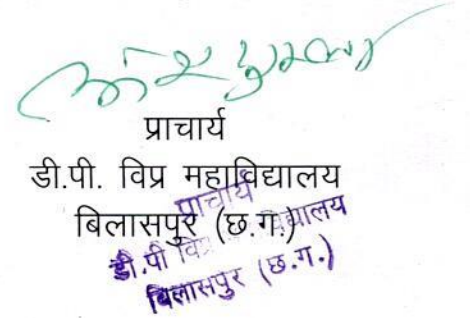 प्राचार्य
डी.पी. विप्र महाविद्यालय
बिलासपुर (छ.ग.)
प्राचार्य
डी.पी विप्र
बिलासपुर (छ.ग.)